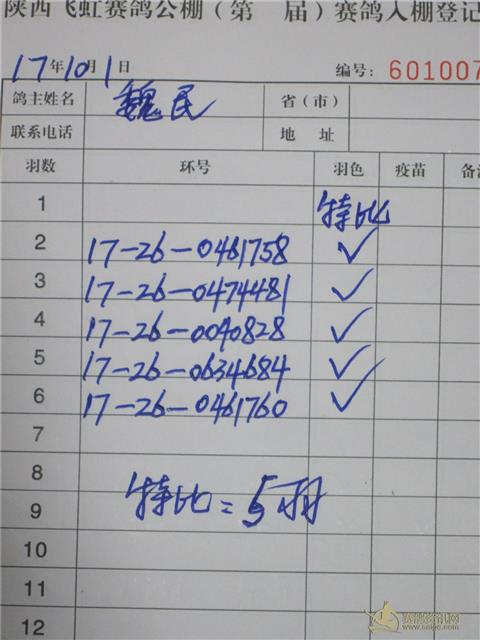 陕西飞虹赛鸽公棚（第 届）赛鸽入棚登记
17年10月1日 编号：601007
鸽主姓名 魏民 省（市）
联系电话 地 址
羽数 环号 羽色 疫苗 备
1 特比
2 17-26-0461758 ✓
3 17-26-0474481 ✓
4 17-26-0040828 ✓
5 17-26-0634684 ✓
6 17-26-0461760 ✓
7
8
9 特比=5羽
10
11
12